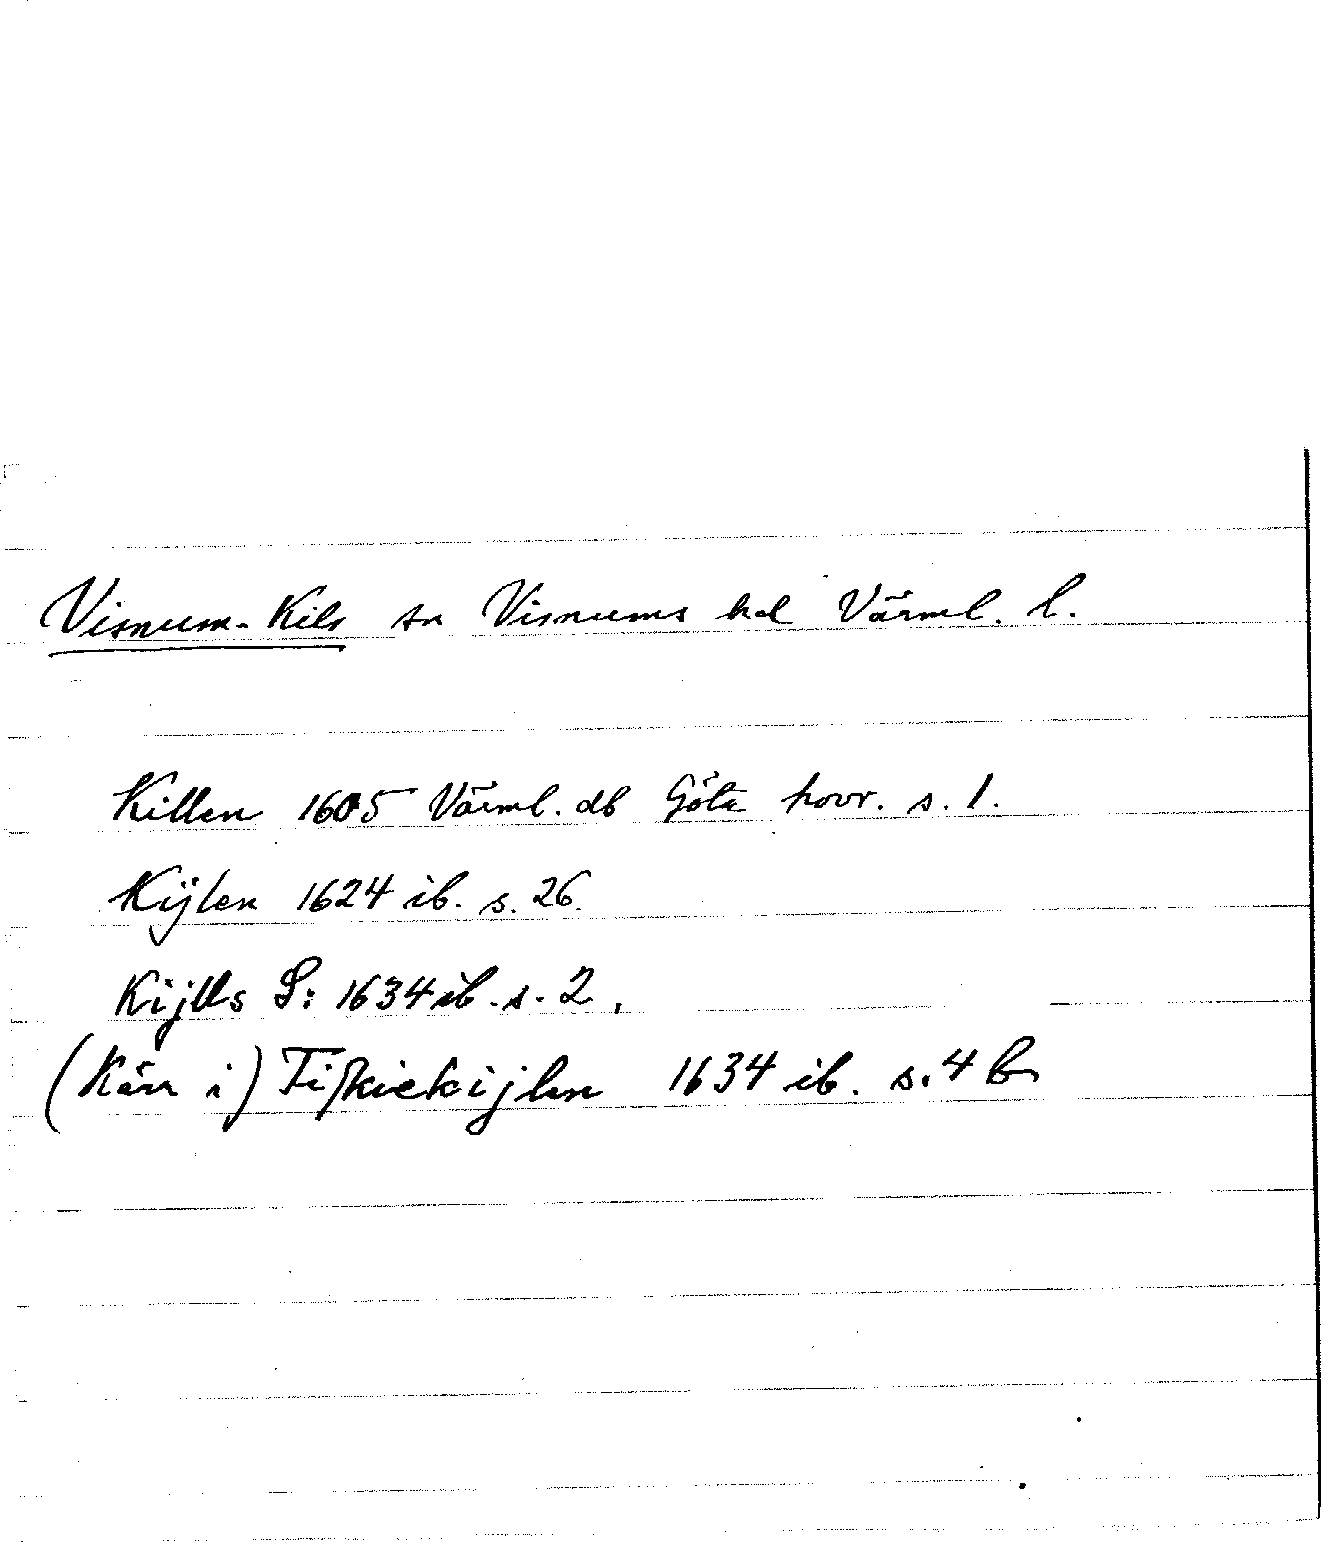 Visnum-Kils sn Visnums hd Värml. l.
Killen 1605 Värml. db Göta hovr. s. 1.
Kijlen 1624 ib. s. 26.
Kijlls S: 1634 ib. s. 2.
(Kärr i) Fiskiekijlen 1634 ib. s. 4 b